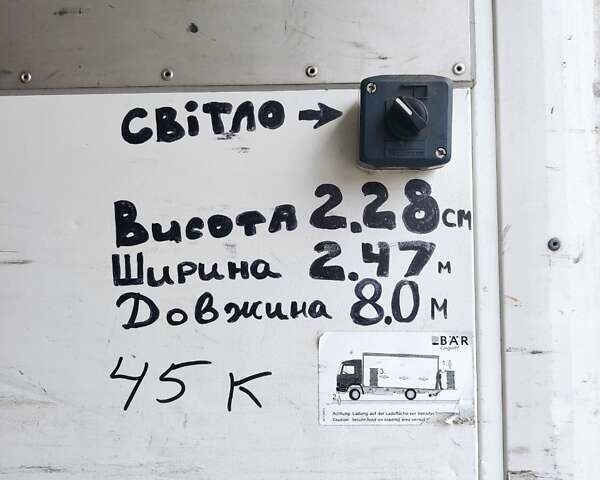 СВІТЛО →
Висота 2.28 см
Ширина 2.47 м
Довжина 8.0 м
45 К
BÄR
Cargolift
3.
2.
Achtung: Ladung auf der Ladefläche vor
Caution: Secure load on loading area